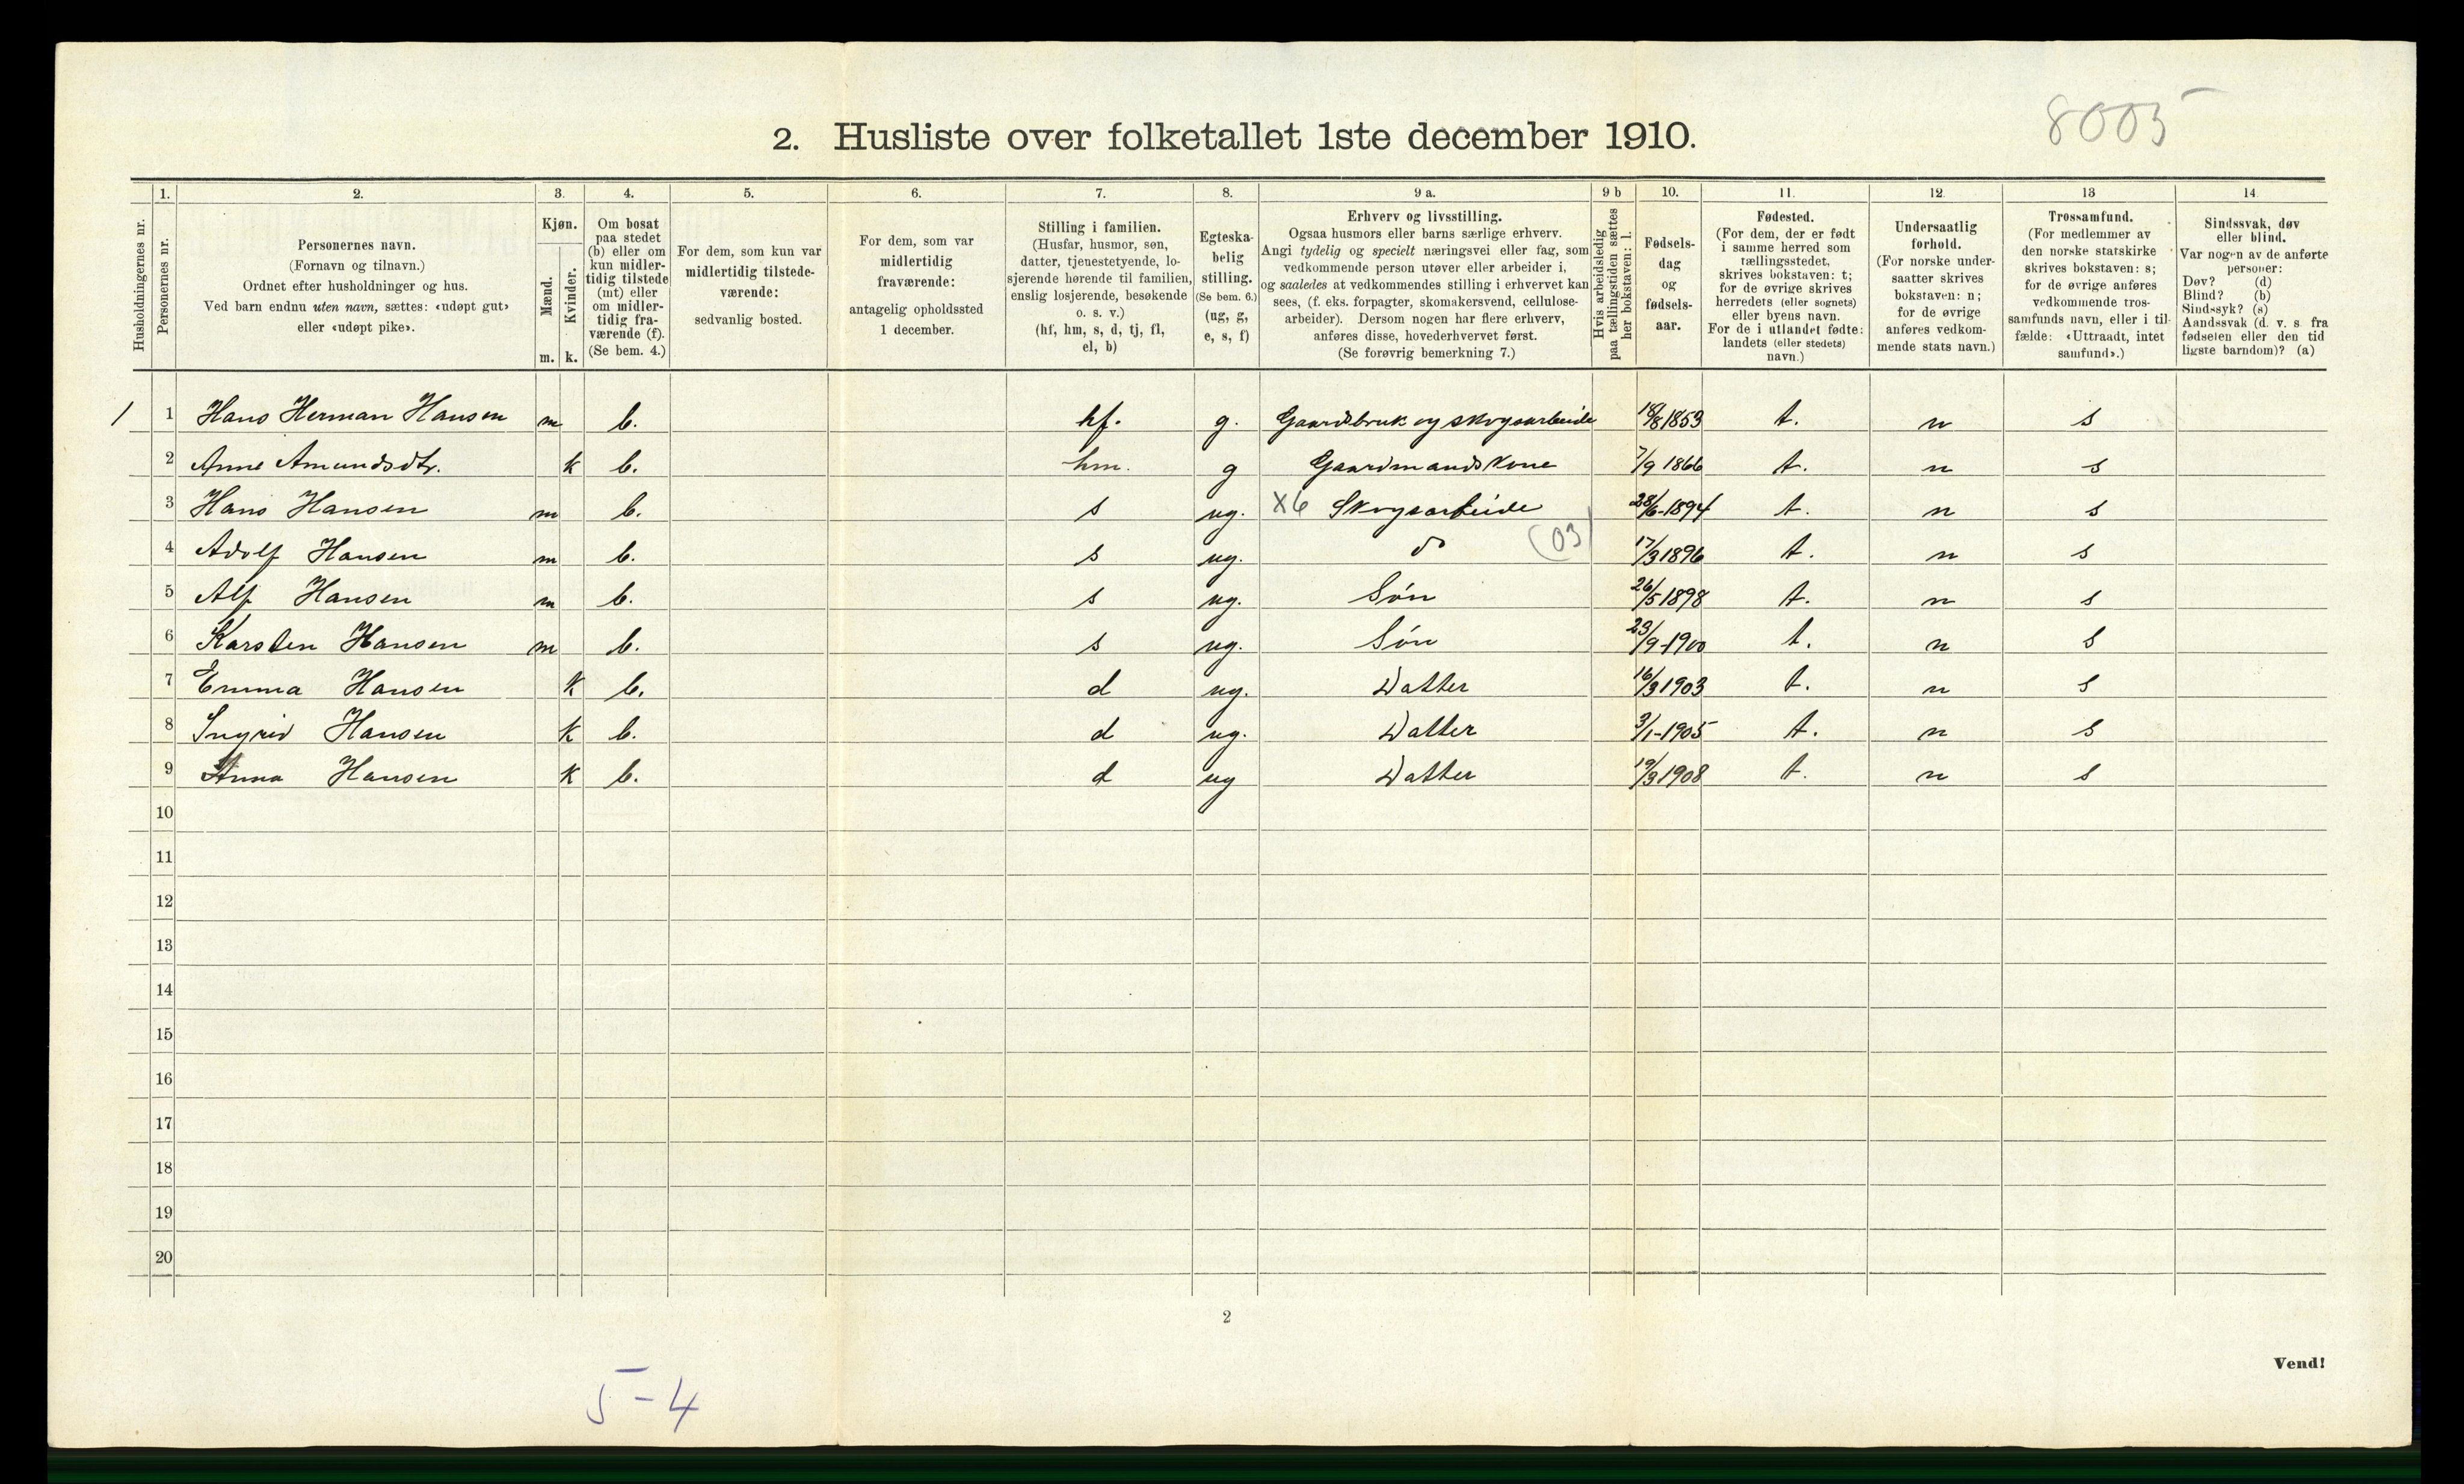 8005
2. Husliste over folketallet 1ste december 1910.
Husholdningernes nr.
1.
Personernes nr.
2.
Personernes navn.
(Fornavn og tilnavn.)
Ordnet efter husholdninger og hus.
Ved barn endnu uten navn, sættes: «udøpt gut»
eller «udøpt pike».
3.
Kjøn.
Mænd.
Kvinder.
m. k.
4.
Om bosat
paa stedet
(b) eller om
kun midler-
tidig tilstede
(mt) eller
om midler-
tidig fra-
værende (f).
(Se bem. 4.)
5.
For dem, som kun var
midlertidig tilstede-
værende:
sedvanlig bosted.
6.
For dem, som var
midlertidig
fraværende:
antagelig opholdssted
1 december.
7.
Stilling i familien.
(Husfar, husmor, søn,
datter, tjenestetyende, lo-
sjerende hørende til familien,
enslig losjerende, besøkende
o. s. v.)
(hf, hm, s, d, tj, fl,
el, b)
8.
Egteska-
belig
stilling.
(Se bem. 6.)
(ug, g,
e, s, f)
9 a.
Erhverv og livsstilling.
Ogsaa husmors eller barns særlige erhverv.
Angi tydelig og specielt næringsvei eller fag, som
vedkommende person utøver eller arbeider i,
og saaledes at vedkommendes stilling i erhvervet kan
sees, (f. eks. forpagter, skomakersvend, cellulose-
arbeider). Dersom nogen har flere erhverv,
anføres disse, hovederhvervet først.
(Se forøvrig bemerkning 7.)
9 b
Hvis arbeidsledig
paa tællingstiden sættes
her bokstaven: l.
10.
Fødsels-
dag
og
fødsels-
aar.
11.
Fødested.
(For dem, der er født
i samme herred som
tællingsstedet,
skrives bokstaven: t;
for de øvrige skrives
herredets (eller sognets)
eller byens navn.
For de i utlandet fødte:
landets (eller stedets)
navn.)
12.
Undersaatlig
forhold.
(For norske under-
saatter skrives
bokstaven: n;
for de øvrige
anføres vedkom-
mende stats navn.)
13
Trossamfund.
(For medlemmer av
den norske statskirke
skrives bokstaven: s;
for de øvrige anføres
vedkommende tros-
samfunds navn, eller i til-
fælde: «Uttraadt, intet
samfund».)
14
Sindssvak, døv
eller blind.
Var nogen av de anførte
personer:
Døv? (d)
Blind? (b)
Sindssyk? (s)
Aandssvak (d. v. s. fra
fødselen eller den tid
ligste barndom)? (a)
1 1 Hans Herman Hansen m b. hf. g. Gaardsbruk og skogsarbeide 18/8 1853 t. n s
2 Anne Amundsdtr. k b. hm. g Gaardmandskone 7/9 1866 t. n s
3 Hans Hansen m b. s ug. X6 Skogsarbeide 28/6-1894 t. n s
4 Adolf Hansen m b. s ug. do (03) 17/3 1896 t. n s
5 Alf Hansen m b. s ug. Søn 26/5 1898 t. n s
6 Karsten Hansen m b. s ug. Søn 23/9-1900 t. n s
7 Emma Hansen k b. d ug. Datter 16/3 1903 t. n s
8 Ingrid Hansen k b. d ug. Datter 3/1-1905 t. n s
9 Anna Hansen k b. d ug Datter 19/3 1908 t. n s
10
11
12
13
14
15
16
17
18
19
20
2
Vend!
5-4